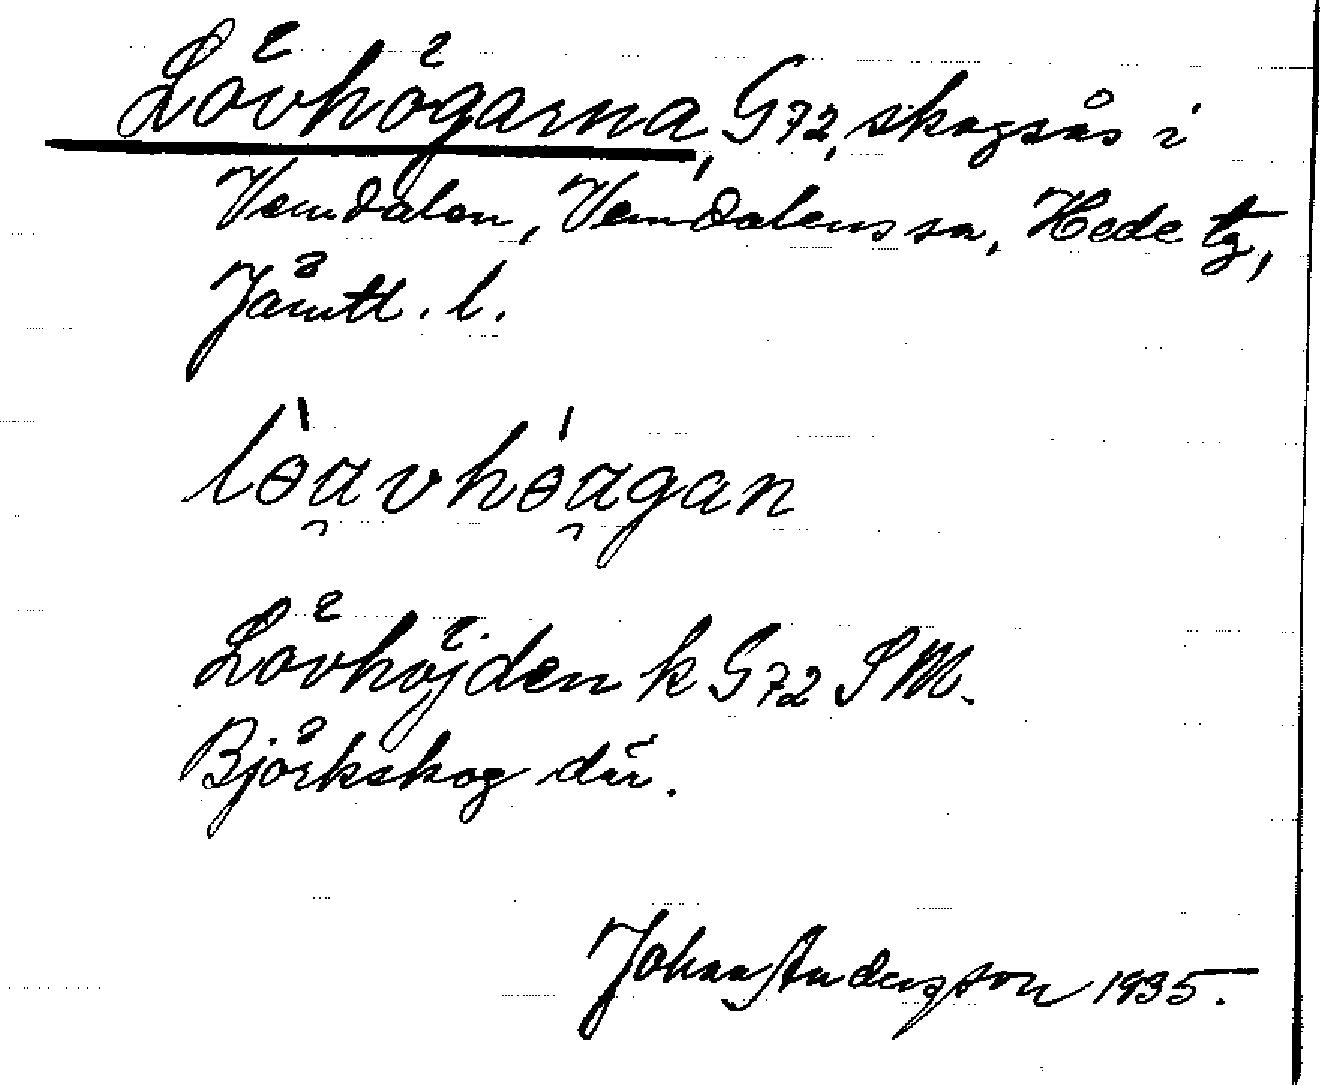 Lövhögarna, G72, skogsås i
Vemdalen, Vemdalens sn, Hede tg,
Jämtl. l.
lɵ̀a̯vhɵ́a̯gan
Lövhöjden k G72 S M.
Björkskog där.
Johan Andersson 1935.